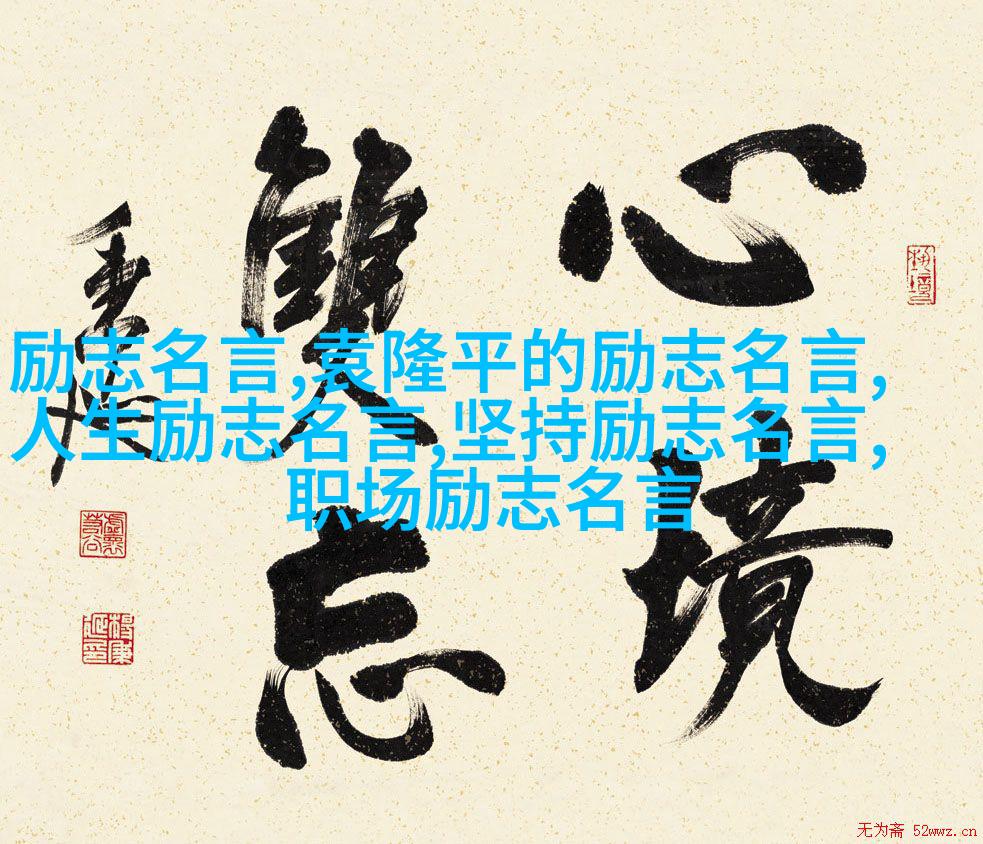 心境
雙忘
励志名言,袁隆平的励志名言,
人生励志名言,坚持励志名言,
职场励志名言
无为斋 52wwz.cn